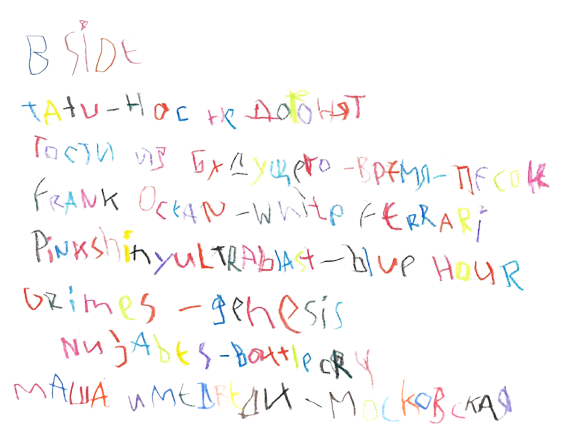 B SiDE
tAtu - Нас не Догонят
Гости из Будущего - Время - Песок
Frank Ocean - White Ferrari
Pinkshinyultrablast - blue Hour
Grimes - genesis
Nujabes - Battlecry
Маша и Медведи - Московская